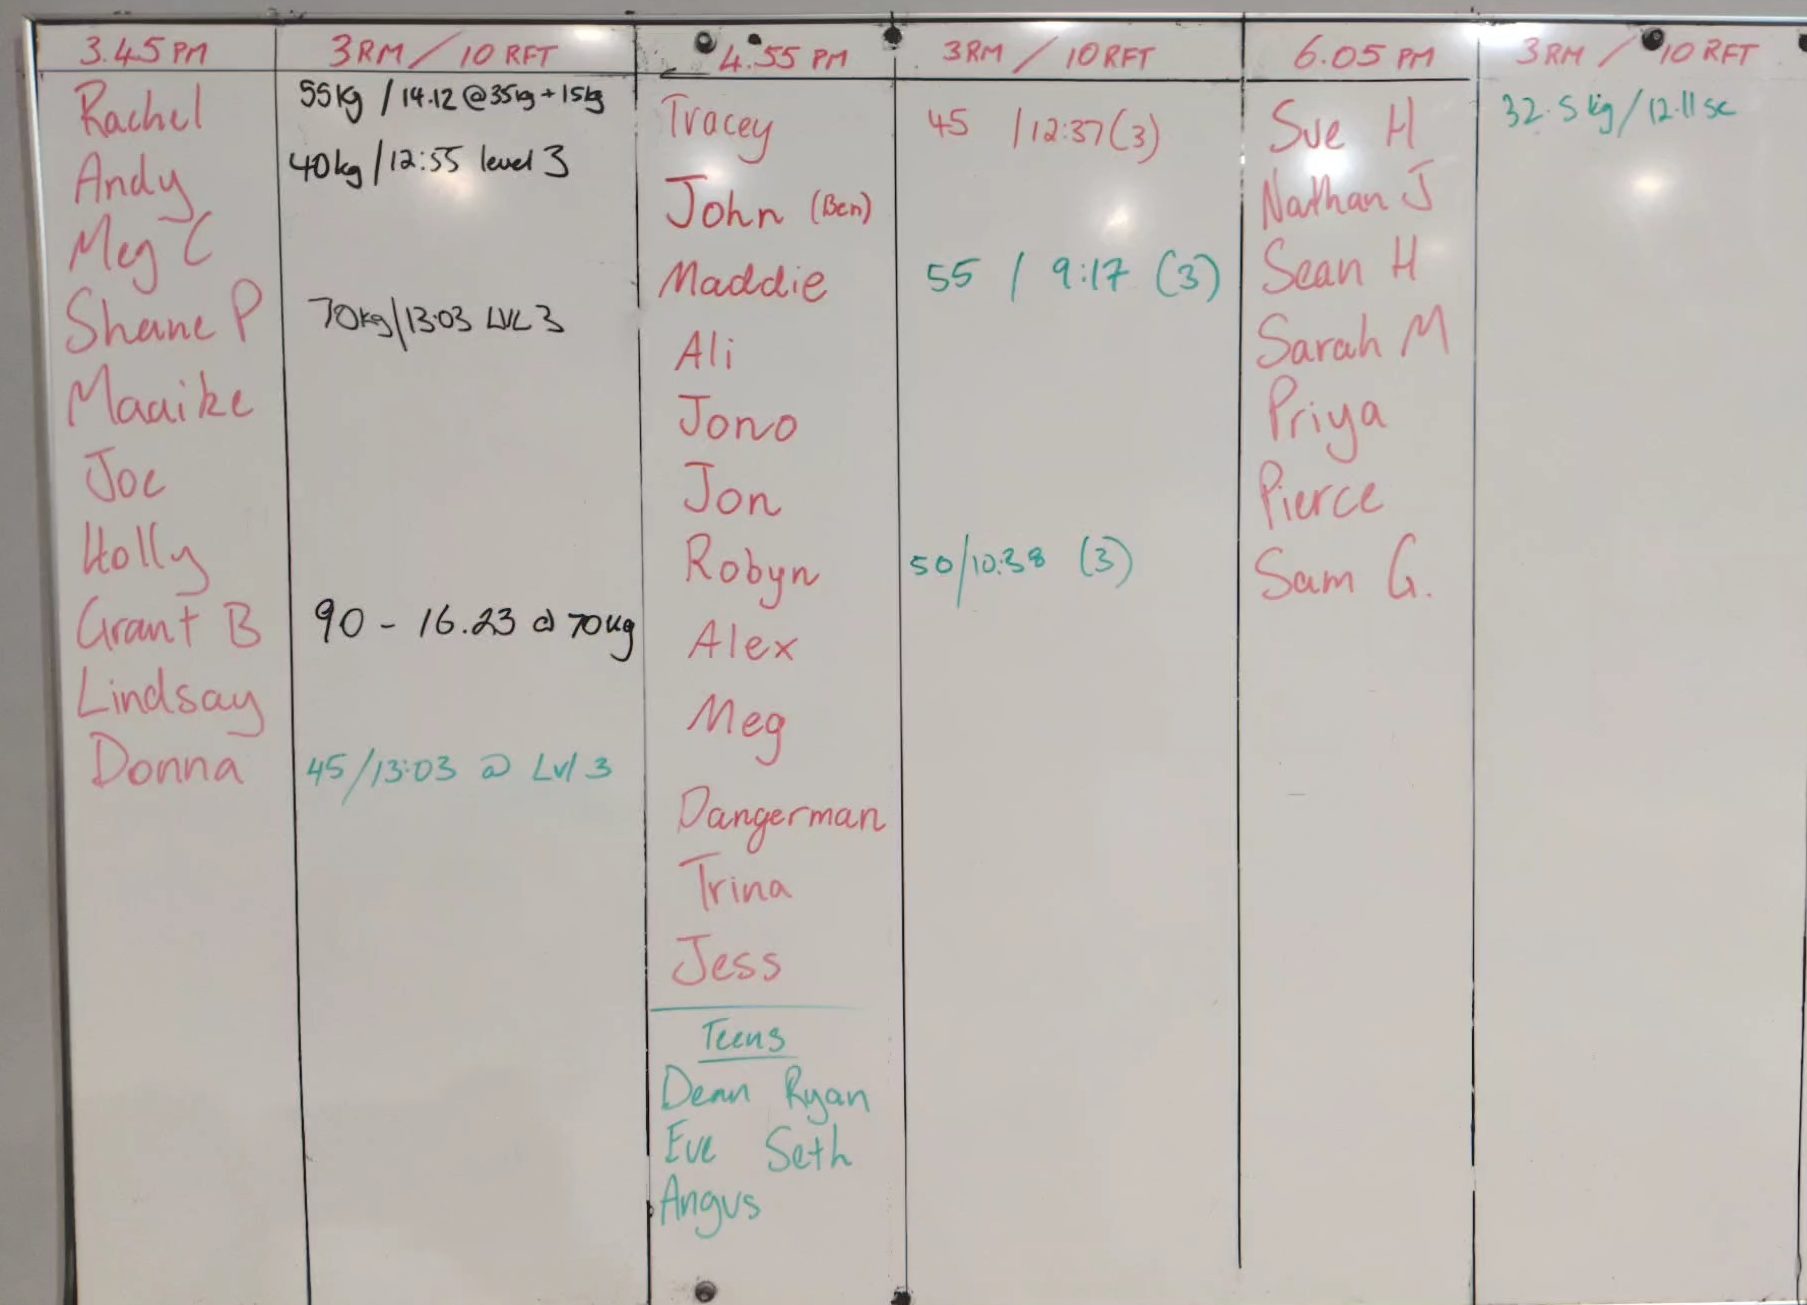 3.45 PM 3RM / 10 RFT
Rachel 55kg / 14.12 @35kg + 15kg
Andy 40kg / 12:55 level 3
Meg C
Shane P 70kg/13:03 LVL 3
Maaike
Joe
Holly
Grant B 90 - 16.23 @ 70kg
Lindsay
Donna 45/13:03 @ Lvl 3
4.55 PM 3RM / 10RFT
Tracey 45 / 12:37 (3)
John (Ben)
Maddie 55 / 9:17 (3)
Ali
Jono
Jon
Robyn 50/10:38 (3)
Alex
Meg
Dangerman
Trina
Jess
Teens
Dean Ryan
Eve Seth
Angus
6.05 PM 3RM / 10 RFT
Sue H 32.5kg / 12.11 sc
Nathan J
Sean H
Sarah M
Priya
Pierce
Sam G.